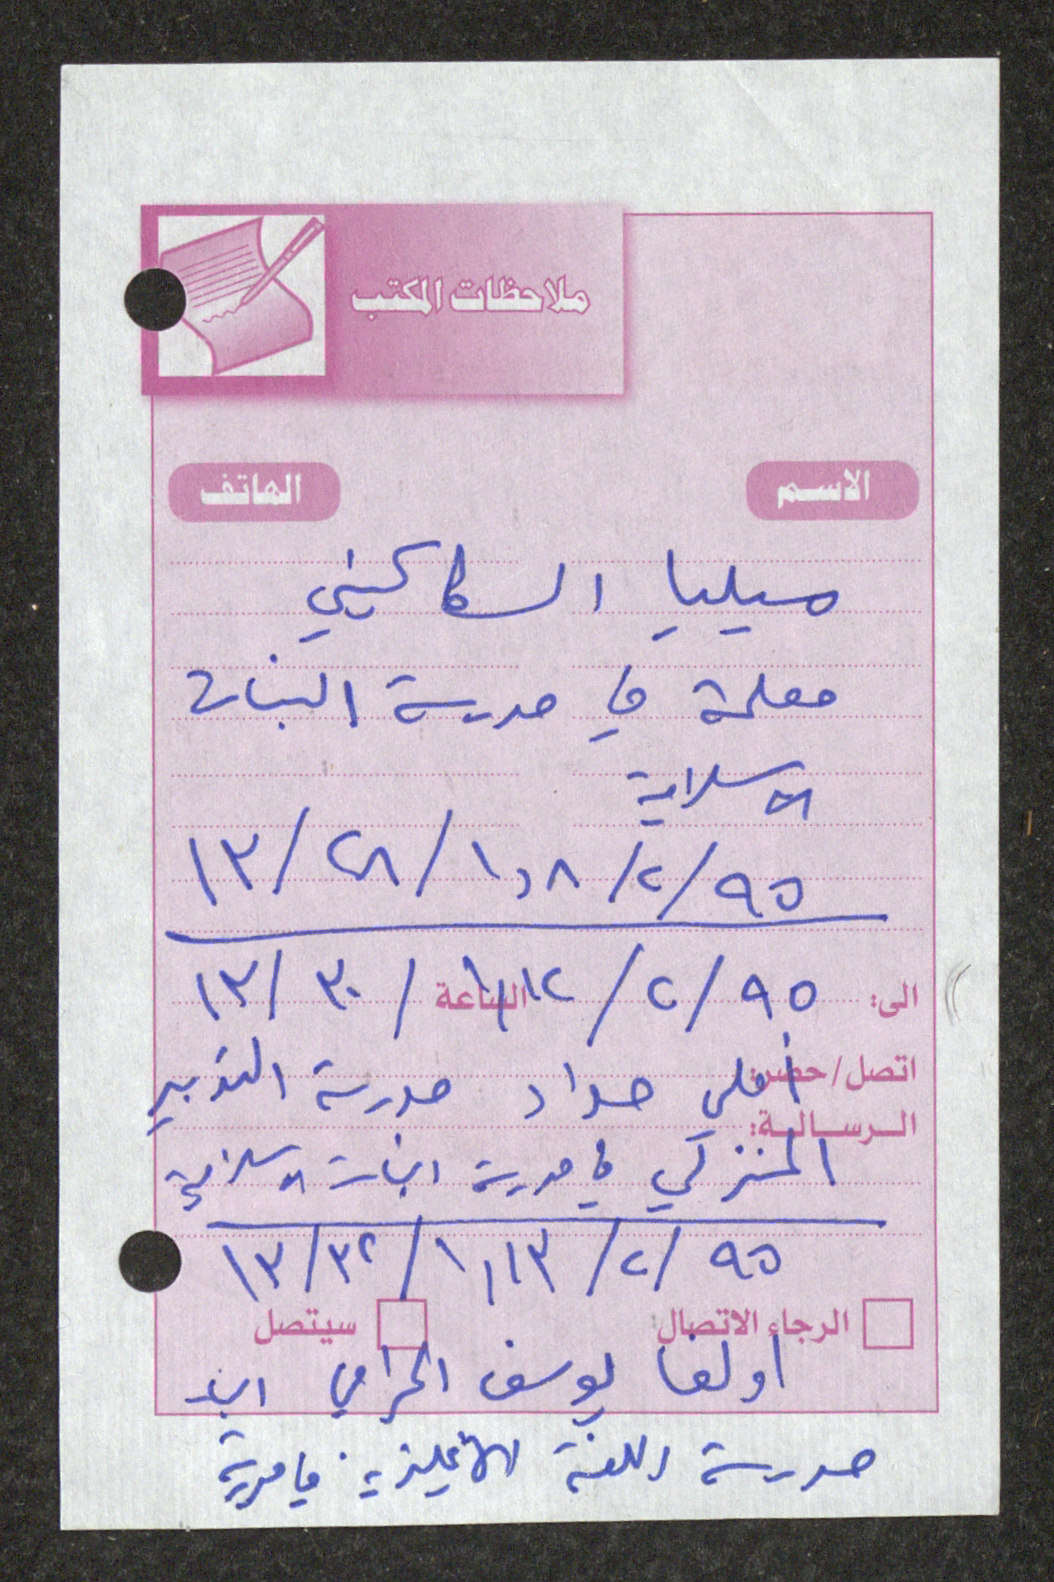 ملاحظات المكتب
الاسم
الهاتف
ميليا السكاكيني
معلمة في مدرسة البنات
الاسلامية
٩٥/٢/١,٨/٢٨/١٣
الى: الساعة
٩٥/٢/١,١٢/٣٠/١٣
اتصل/حضر:
حداد مدرسة التدبير
الرسالة:
المنزلي في مدرسة البنات الاسلامية
٩٥/٢/١,١٣/٣٢/١٣
الرجاء الاتصال
سيتصل
اولغا يوسف
مدرسة اللغة الانجليزية في مدرسة